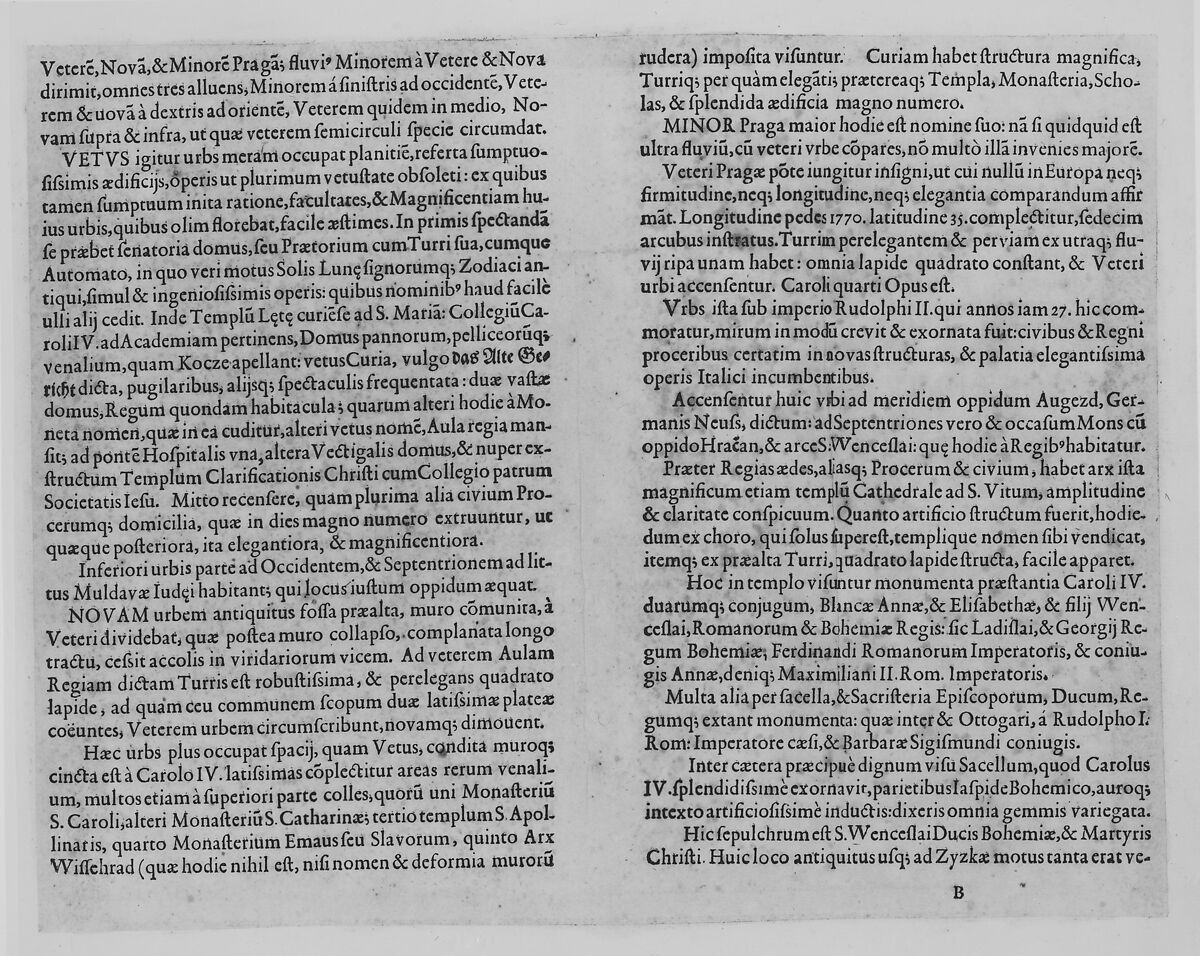 Veterē, Novā, &Minorē Pragā; fluviꝰ Minorem à Vetere & Nova
dirimit, omnes tres alluens, Minorem á ſiniſtris ad occidentē, Vete-
rem & uovā à dextris ad orientē, Veterem quidem in medio, No-
vam ſupra & infra, ut quæ veterem ſemicirculi ſpecie circumdat.
VETVS igitur urbs meram occupat planitiē, referta ſumptuo-
ſiſsimis ædificijs, operis ut plurimum vetuſtate obſoleti: ex quibus
tamen ſumptuum inita ratione, facultates, & Magnificentiam hu-
ius urbis, quibus olim florebat, facile æſtimes. In primis ſpectandā
ſe præbet ſenatoria domus, ſeu Prætorium cum Turri ſua, cumque
Automato, in quo veri motus Solis Lunę ſignorumq; Zodiaci an-
tiqui, ſimul & ingenioſiſsimis operis: quibus nominibꝰ haud facile
ulli alij cedit. Inde Templū Lętę curiēſe ad S. Mariā: Collegiū Ca-
roli IV. ad Academiam pertinens, Domus pannorum, pelliceorūq;
venalium, quam Kocze apellant: vetus Curia, vulgo das Alte Ge-
richt dicta, pugilaribus, alijsq; ſpectaculis frequentata: duæ vaſtæ
domus, Regum quondam habitacula; quarum alteri hodie à Mo-
neta nomen, quæ in ea cuditur, alteri vetus nomē, Aula regia man-
ſit; ad pontē Hoſpitalis vna, altera Vectigalis domus, & nuper ex-
ſtructum Templum Clarificationis Chriſti cum Collegio patrum
Societatis Ieſu. Mitto recenſere, quam plurima alia civium Pro-
cerumq; domicilia, quæ in dies magno numero extruuntur, ut
quæque poſteriora, ita elegantiora, & magnificentiora.
Inferiori urbis parte ad Occidentem, & Septentrionem ad lit-
tus Muldavæ Iudęi habitant; qui locus iuſtum oppidum æquat.
NOVAM urbem antiquitus foſſa præalta, muro cōmunita, à
Veteri dividebat, quæ poſtea muro collapſo, complanata longo
tractu, ceſsit accolis in viridariorum vicem. Ad veterem Aulam
Regiam dictam Turris eſt robuſtiſsima, & perelegans quadrato
lapide, ad quam ceu communem ſcopum duæ latiſsimæ plateæ
coëuntes, Veterem urbem circumſcribunt, novamq; dimouent.
Hæc urbs plus occupat ſpacij, quam Vetus, condita muroq;
cincta eſt à Carolo IV. latiſsimas cōplectitur areas rerum venali-
um, multos etiam à ſuperiori parte colles, quorū uni Monaſteriū
S. Caroli, alteri Monaſteriū S. Catharinæ; tertio templum S. Apol-
linaris, quarto Monaſterium Emaus ſeu Slavorum, quinto Arx
Wiſſehrad (quæ hodie nihil eſt, niſi nomen & deformia murorū
rudera) impoſita viſuntur. Curiam habet ſtructura magnifica,
Turriq; per quàm elegāti; prætereaq; Templa, Monaſteria, Scho-
las, & ſplendida ædificia magno numero.
MINOR Praga maior hodie eſt nomine ſuo: nā ſi quidquid eſt
ultra fluviū, cū veteri vrbe cōpares, nō multò illā invenies majorē.
Veteri Pragæ pōte iungitur inſigni, ut cui nullū in Europa neq;
firmitudine, neq; longitudine, neq; elegantia comparandum affir
māt. Longitudine pedes 1770. latitudine 35. complectitur, ſedecim
arcubus inſtratus. Turrim perelegantem & perviam ex utraq; flu-
vij ripa unam habet: omnia lapide quadrato conſtant, & Veteri
urbi accenſentur. Caroli quarti Opus eſt.
Vrbs iſta ſub imperio Rudolphi II. qui annos iam 27. hic com-
moratur, mirum in modū crevit & exornata fuit: civibus & Regni
proceribus certatim in novas ſtructuras, & palatia elegantiſsima
operis Italici incumbentibus.
Accenſentur huic vrbi ad meridiem oppidum Augezd, Ger-
manis Neuſs, dictum: ad Septentriones vero & occaſum Mons cū
oppido Hračan, & arce S. Wenceſlai: quę hodie à Regibꝰ habitatur.
Præter Regias ædes, aliasq; Procerum & civium, habet arx iſta
magnificum etiam templū Cathedrale ad S. Vitum, amplitudine
& claritate conſpicuum. Quanto artificio ſtructum fuerit, hodie-
dum ex choro, qui ſolus ſupereſt, templique nomen ſibi vendicat,
itemq; ex præalta Turri, quadrato lapide ſtructa, facile apparet.
Hoc in templo viſuntur monumenta præſtantia Caroli IV.
duarumq; conjugum, Blancæ Annæ, & Eliſabethæ, & filij Wen-
ceſlai, Romanorum & Bohemiæ Regis: ſic Ladiſlai, & Georgij Re-
gum Bohemiæ, Ferdinandi Romanorum Imperatoris, & coniu-
gis Annæ, deniq; Maximiliani II. Rom. Imperatoris.
Multa alia per ſacella, & Sacriſteria Epiſcoporum, Ducum, Re-
gumq; extant monumenta: quæ inter & Ottogari, á Rudolpho I.
Rom: Imperatore cæſi, & Barbaræ Sigiſmundi coniugis.
Inter cætera præcipuè dignum viſu Sacellum, quod Carolus
IV. ſplendidiſsimè exornavit, parietibus Iaſpide Bohemico, auroq;
intexto artificioſiſsimè inductis: dixeris omnia gemmis variegata.
Hic ſepulchrum eſt S. Wenceſlai Ducis Bohemiæ, & Martyris
Chriſti. Huic loco antiquitus uſq; ad Zyzkæ motus tanta erat ve-
B